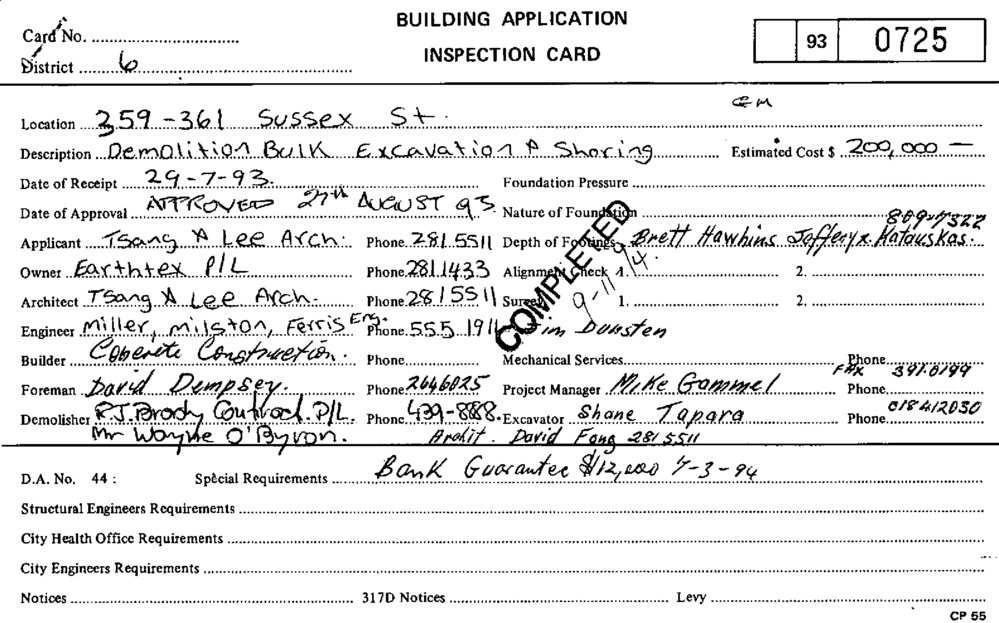 BUILDING APPLICATION
Card No.
INSPECTION CARD
93 0725
District 6
EM
Location 259-361 Sussex St.
Description Demolition Bulk Excavation & Shoring Estimated Cost $ 200,000 —
Date of Receipt 29-7-93. Foundation Pressure
Date of Approval APPROVED 27th AUGUST 93. Nature of Foundation
809-7322
Applicant Tsang & Lee Arch. Phone 281 5511 Depth of Footings Brett Hawkins Jeffery & Katauskas.
Owner Earthtex P/L Phone 281 1433 Alignment Check 1. 2.
Architect Tsang & Lee Arch. Phone 281 5511 Survey 1. 2.
COMPLETED
Engineer Miller, Milston, Ferris Eng. Phone 555 1911 Jim Dunsten
Builder Concrete Construction. Phone Mechanical Services Phone
FAX 391.0199
Foreman David Dempsey. Phone 2646025 Project Manager Mike Gammel Phone
Demolisher R.J. Brody Contract. P/L. Phone 439-888. Excavator Shane Tapara Phone 018412030
Mr Wayne O'Byron. Arohit. David Fang 281 5511
D.A. No. 44 : Special Requirements Bank Guarantee $12,000 7-3-94
Structural Engineers Requirements
City Health Office Requirements
City Engineers Requirements
Notices 317D Notices Levy
CP 55